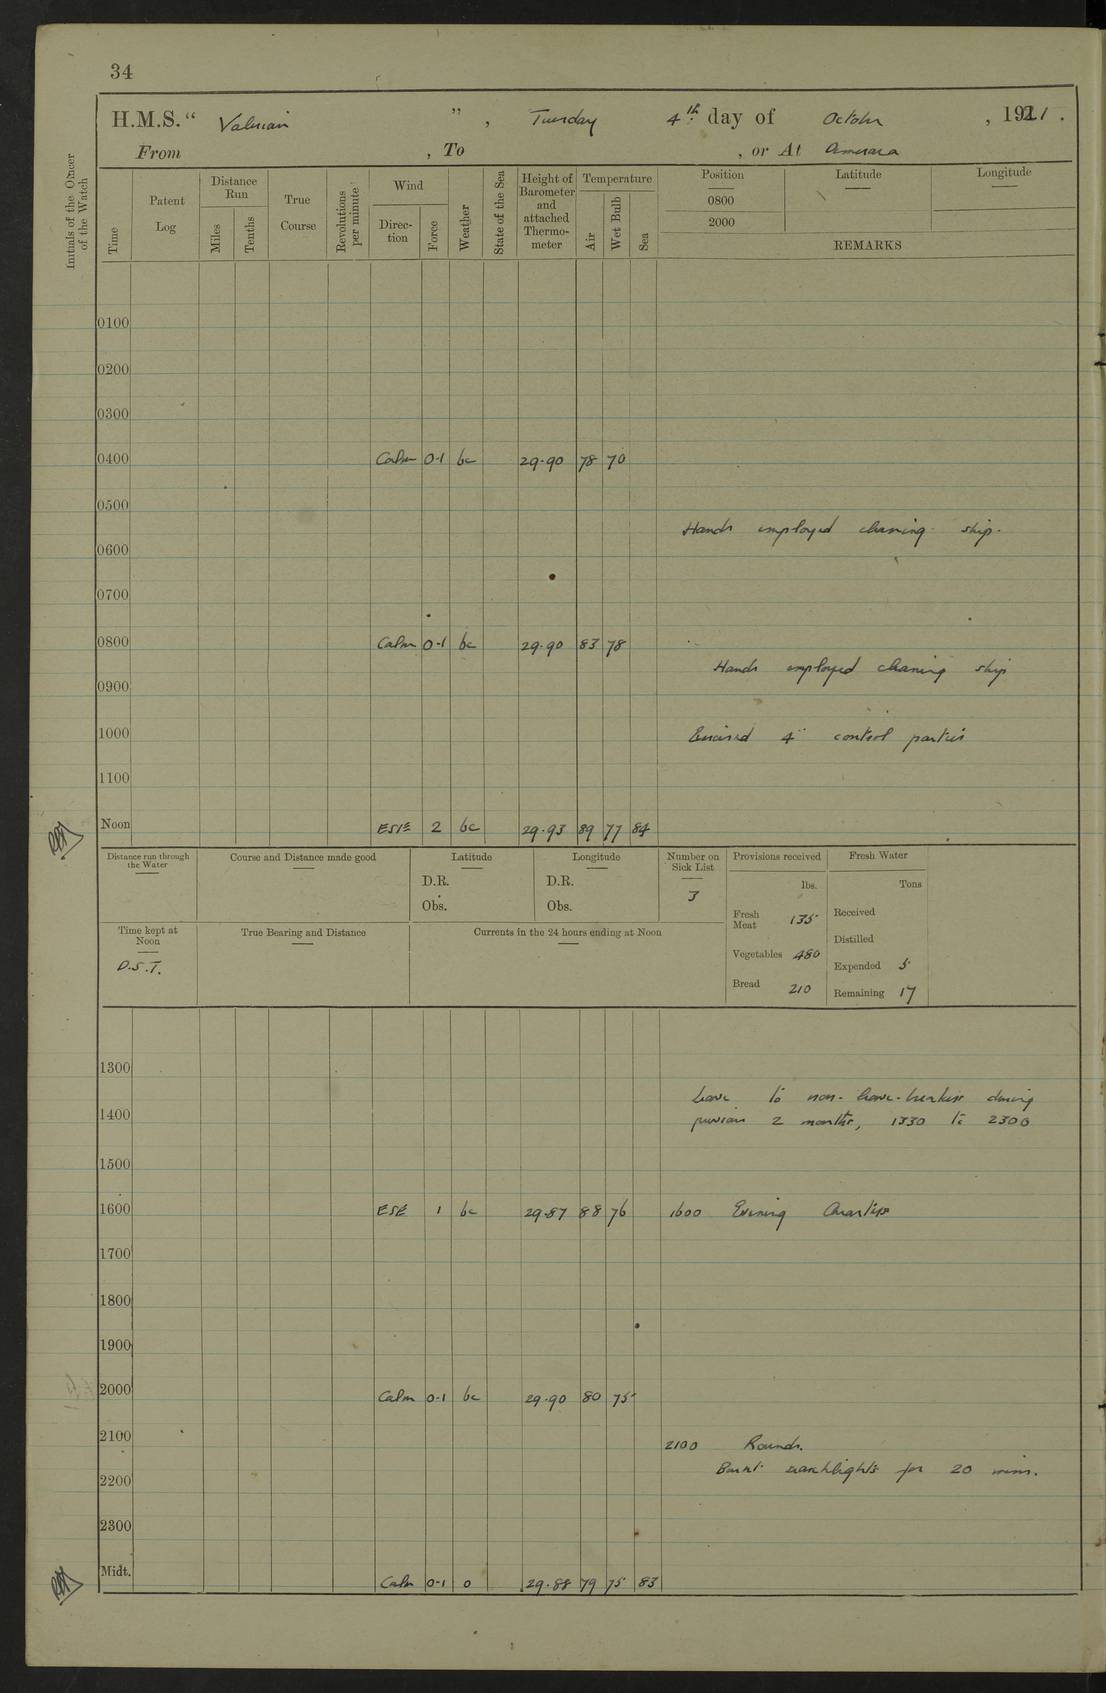 34
H.M.S. “ Valerian ” , Tuesday 4th day of October , 1921 .
From , To , or At
Initials of the Officer of the Watch
Time
Patent Log
Distance Run
Miles
Tenths
True Course
Revolutions per minute
Wind
Direction
Force
Weather
State of the Sea
Height of Barometer and attached Thermometer
Temperature
Air
Wet Bulb
Sea
Position
0800
2000
Latitude
Longitude
REMARKS
0100
0200
0300
0400 Calm 0-1 bc 29.90 78 70
0500
Hands employed cleaning ship.
0600
0700
0800 Calm 0-1 bc 29.90 83 78
Hands employed cleaning ship
0900
1000 Exercised 4" control parties
1100
Noon ESE 2 bc 29.93 89 77 84
Distance run through the Water
Course and Distance made good
Latitude
D.R.
Obs.
Longitude
D.R.
Obs.
Number on Sick List
3
Provisions received
lbs.
Fresh Meat 135
Vegetables 480
Bread 210
Fresh Water
Tons
Received
Distilled
Expended 5
Remaining 17
Time kept at Noon
D.S.T.
True Bearing and Distance
Currents in the 24 hours ending at Noon
1300
Leave to non-leave-breakers during
1400 previous 2 months, 1330 to 2300
1500
1600 ESE 1 bc 29.87 88 76 1600 Evening Quarters
1700
1800
1900
2000 Calm 0-1 bc 29.90 80 75
2100 2100 Rounds.
Burnt searchlights for 20 mins.
2200
2300
Midt. Calm 0-1 o 29.88 79 75 83